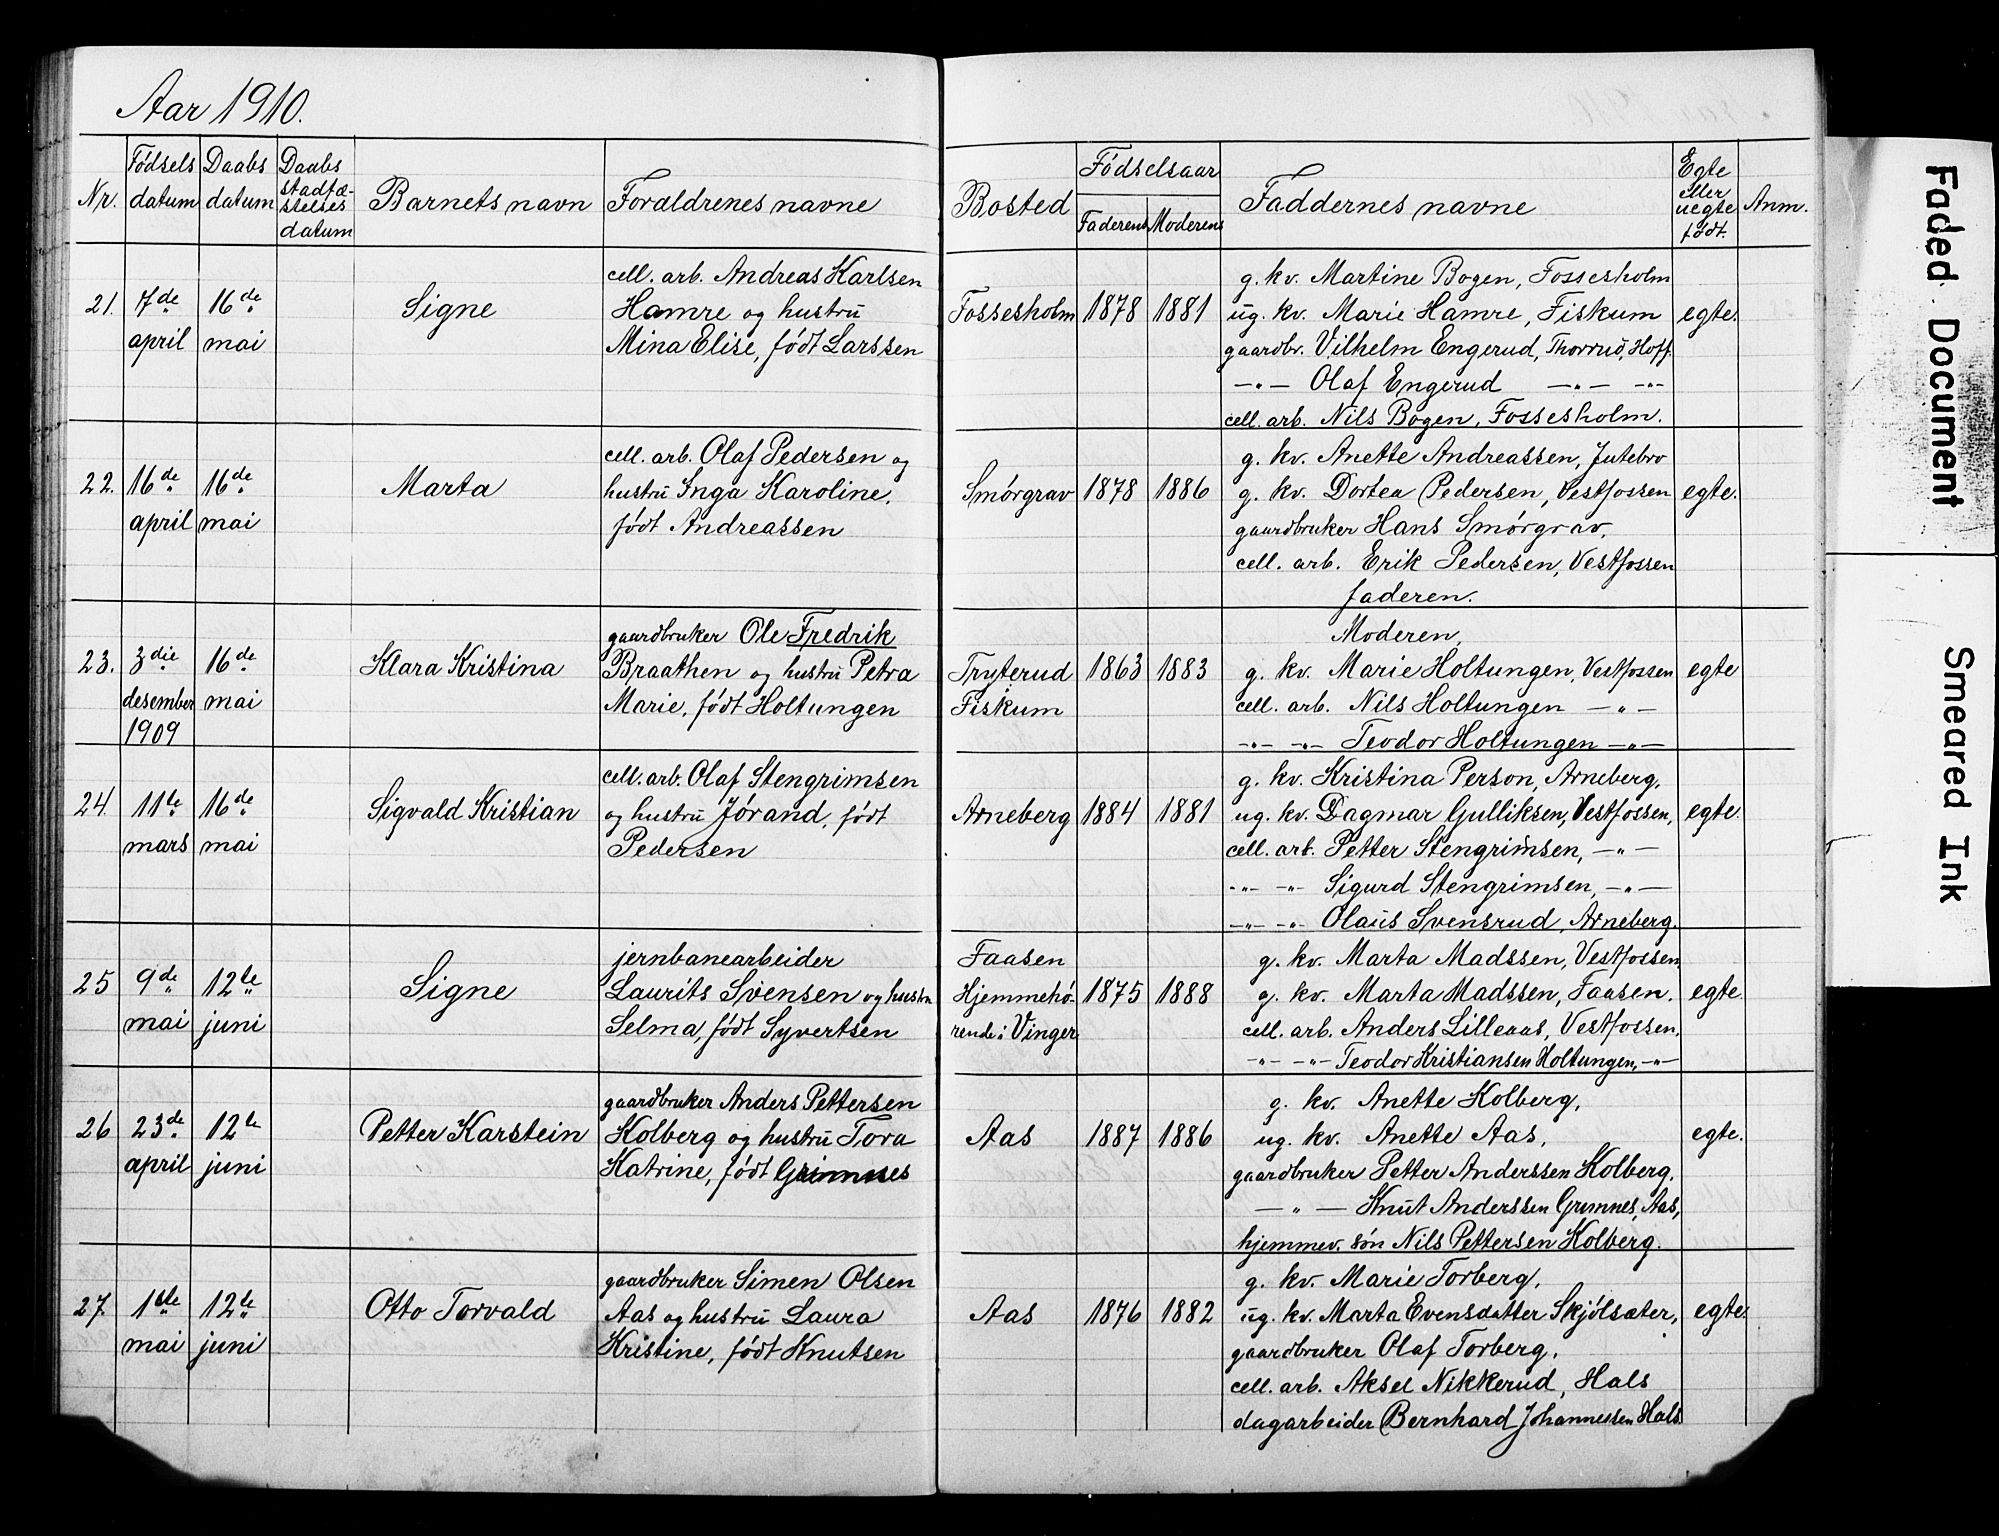 Aar 1910.
Nr.
Fødsels datum
Daabs datum
Daabs stadfæ- stelses datum
Barnets navn
Forældrenes navne
Bosted
Fødselsaar
Faderens
Moderens
Faddernes navne
Egte eller uegte født.
Anm.
21. 7de april 16de mai Signe
cell. arb. Andreas Karlsen
Hamre og hustru
Mina Elise, født Larssen
Fossesholm 1878 1881
g. kv. Martine Bogen, Fossesholm
ug. kv. Marie Hamre, Fiskum
gaardbr. Vilhelm Engerud, Thorrud, Hoff.
—„— Olaf Engerud —„— —„—
cell. arb. Nils Bogen, Fossesholm.
egte.
22. 16de april 16de mai Marta
cell. arb. Olaf Pedersen og
hustru Inga Karoline,
født Andreassen
Smørgrav 1878 1886
g. kv. Anette Andreassen, Jutebro
g. kv. Dortea Pedersen, Vestfossen
gaardbruker Hans Smørgrav,
cell. arb. Erik Pedersen, Vestfossen
faderen.
egte.
23. 3die desember 1909 16de mai Klara Kristina
gaardbruker Ole Fredrik
Braathen og hustru Petra
Marie, født Holtungen
Tryterud
Fiskum
1863 1883
Moderen,
g. kv. Marie Holtungen, Vestfossen
cell. arb. Nils Holtungen —„—
—„— —„— Teodor Holtungen —„—
egte
24. 11te mars 16de mai Sigvald Kristian
cell. arb. Olaf Stengrimsen
og hustru Jørand, født
Pedersen
Arneberg 1884 1881
g. kv. Kristina Person, Arneberg,
ug. kv. Dagmar Gulliksen, Vestfossen,
cell. arb. Petter Stengrimsen, —„—
—„— —„— Sigurd Stengrimsen, —„—
—„— —„— Olaus Svensrud, Arneberg.
egte.
25 9de mai 12te juni Signe
jernbanearbeider
Laurits Svensen og hustru
Selma, født Syvertsen
Faasen
Hjemmehø-
rende i Vinger
1875 1888
g. kv. Marta Madssen, Vestfossen
g. kv. Marta Madssen, Faasen.
cell. arb. Anders Lilleaas, Vestfossen,
—„— —„— Teodor Kristiansen Holtungen, —„—
egte.
26 23de april 12te juni Petter Karstein
gaardbruker Anders Pettersen
Kolberg og hustru Tora
Katrine, født Grimnes
Aas 1887 1886
g. kv. Anette Kolberg,
ug. kv. Anette Aas,
gaardbruker Petter Anderssen Kolberg.
—„— Knut Anderssen Grimnes, Aas,
hjemmev. søn Nils Pettersen Kolberg.
egte.
27. 1ste mai 12te juni Otto Torvald
gaardbruker Simen Olsen
Aas og hustru Laura
Kristine, født Knutsen
Aas 1876 1882
g. kv. Marie Torberg,
ug. kv. Marta Evensdatter Skjølsæter,
gaardbruker Olaf Torberg,
cell. arb. Aksel Nikkerud, Hals
dagarbeider Bernhard Johannessen Hals
egte.
Faded Document
Smeared Ink